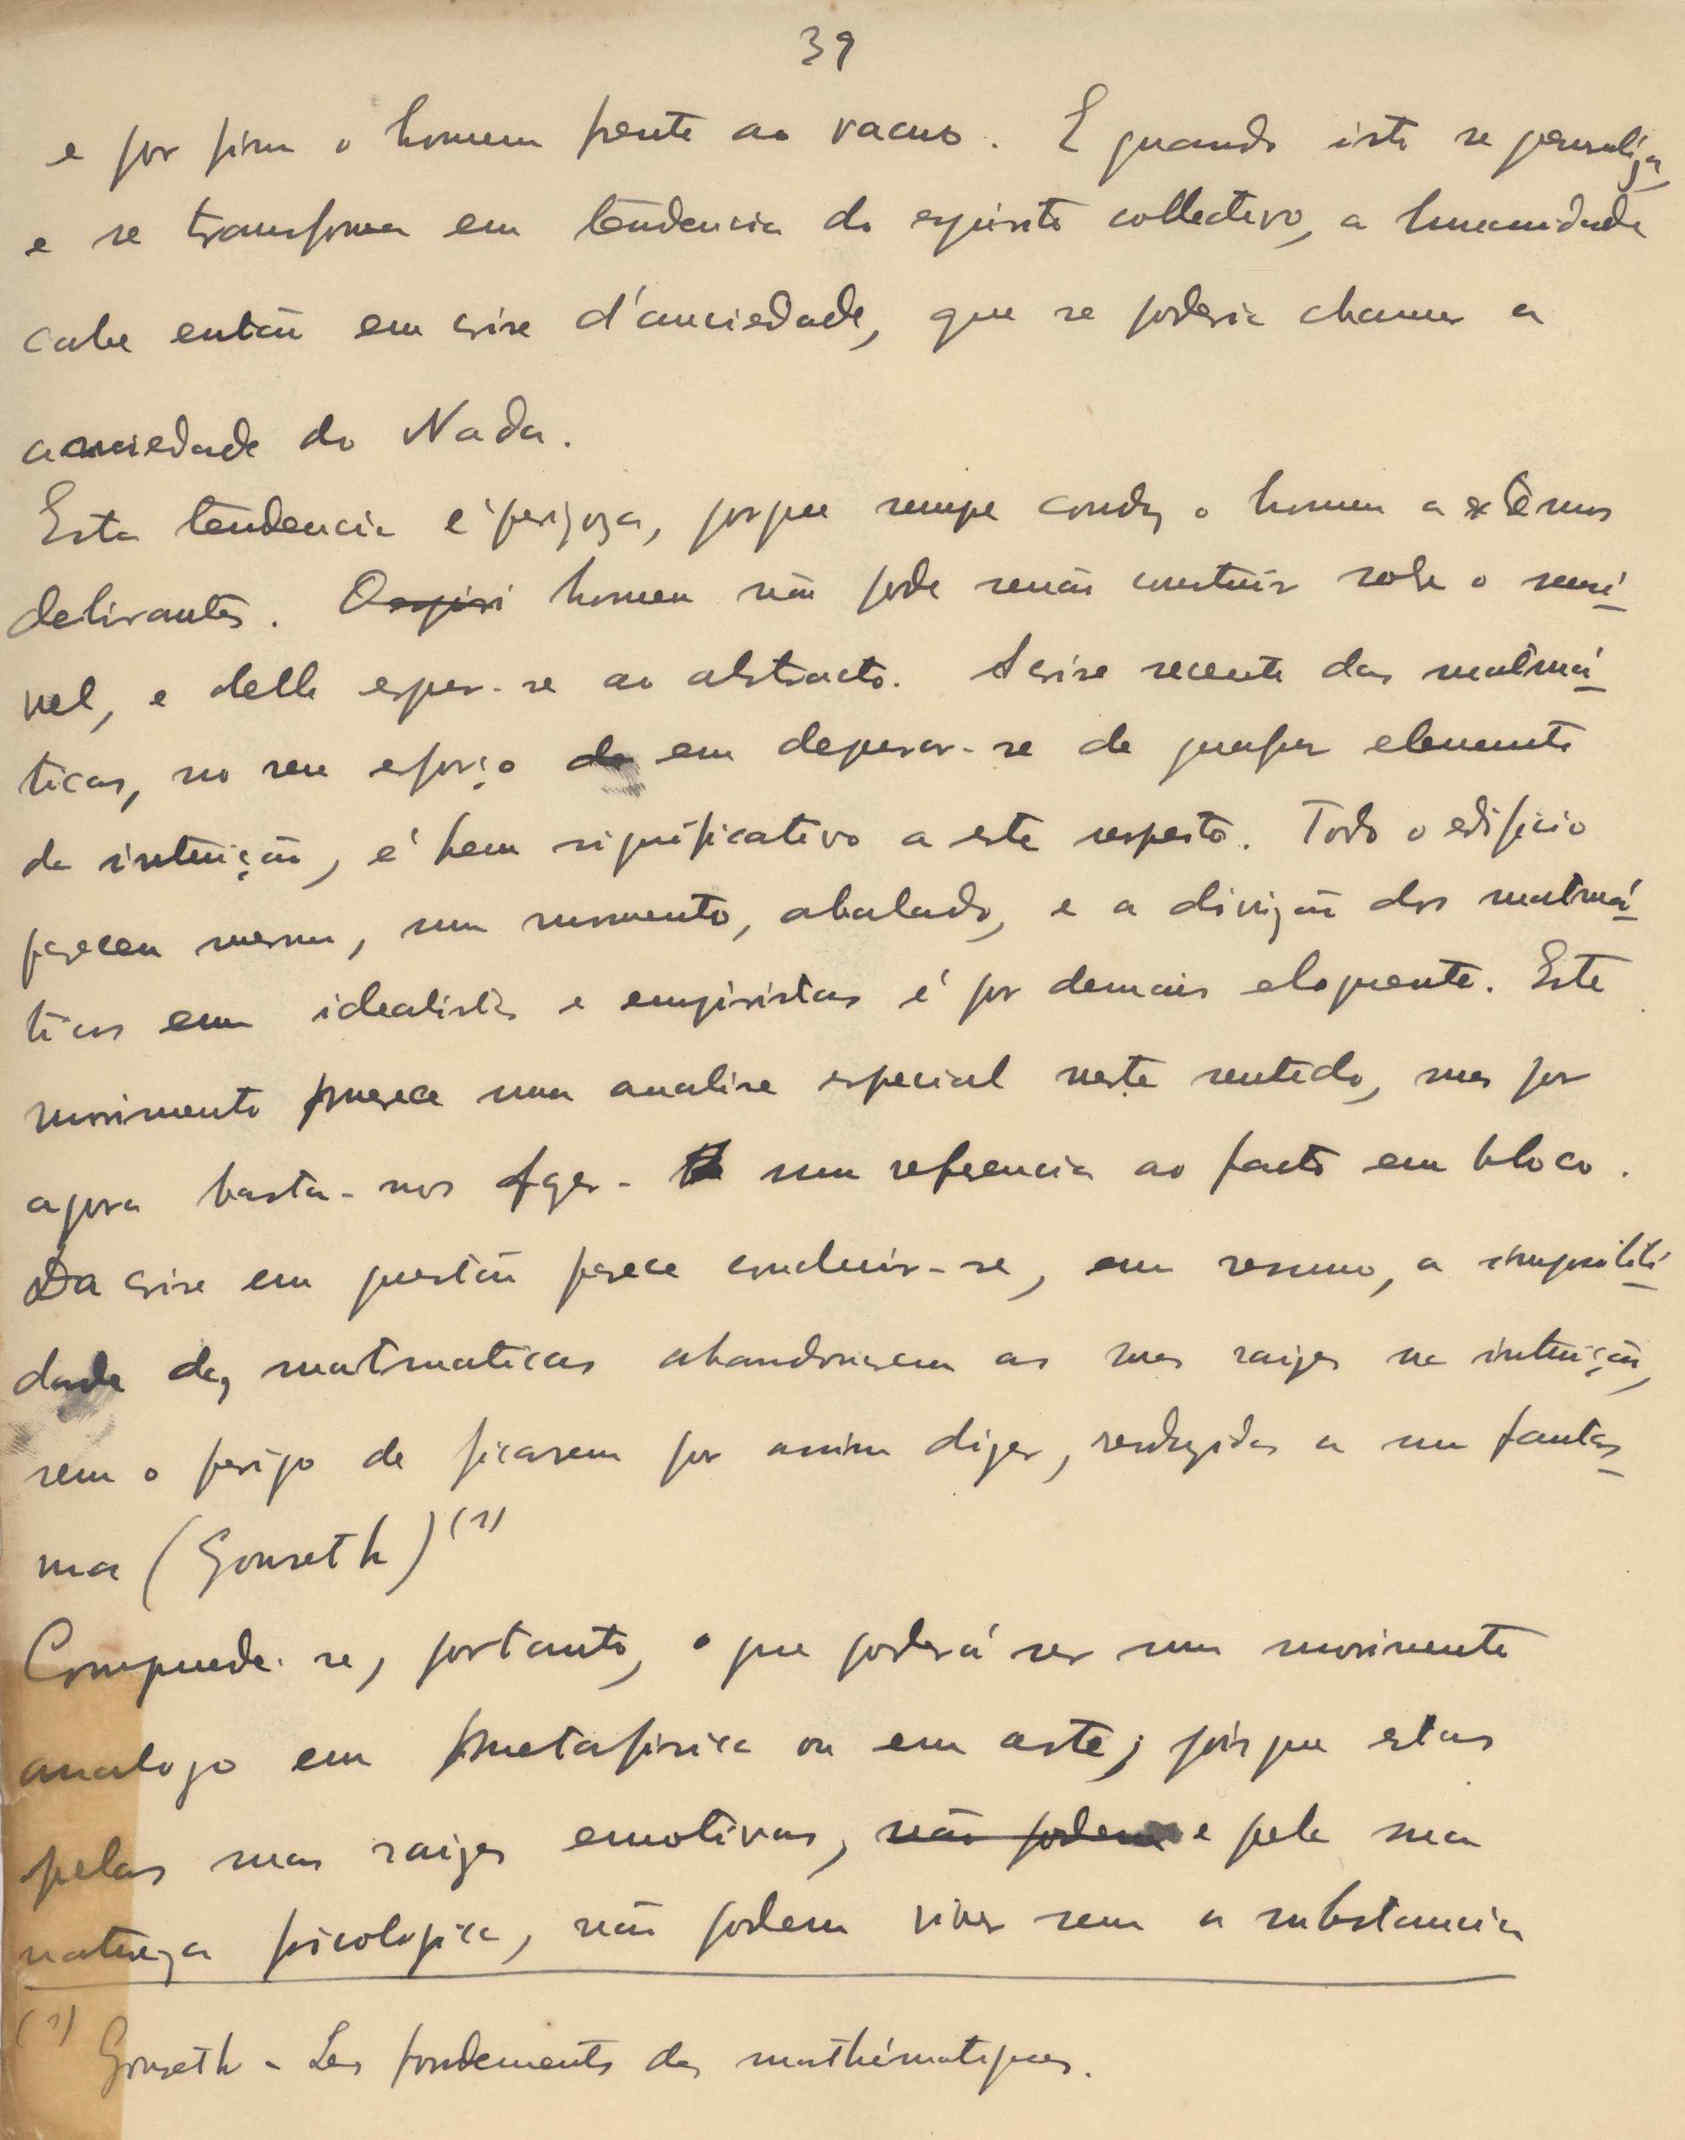 39
e por fim o homem frente ao vacuo. E quando isto se generaliza
e se transforma em tendencia do espirito collectivo, a humanidade
cahe então em crise d'anciedade, que se poderia chamar a
anciedade do Nada.
Esta tendencia é perigoza, porque sempre conduz o homem a extremos
delirantes. O espiri homem não pode senão construir sobre o sensi-
vel, e delle erguer-se ao abstracto. A crise recente das matemá-
ticas, no seu esforço de em depurar-se de qualquer elemento
de intuição, é bem significativo a este respeito. Todo o edificio
pareceu mesmo, um momento, abalado, e a divizão dos matemá-
ticos em idealistas e empiristas é por demais eloquente. Este
movimento merece uma analise especial neste sentido, mas por
agora basta-nos fazer uma referencia ao facto em bloco.
Da crise em questão parece concluir-se, em resumo, a impossibili-
dade das matematicas abandonarem as suas raizes na intuição,
sem o perigo de ficarem por assim dizer, reduzidas a um fantas-
ma (Gonseth) (1)
Comprende-se, portanto, o que poderá ser um movimento
analogo em metafisica ou em arte; pois que estas
pelas suas raizes emotivas, não podem e pela sua
natureza psicologica, não podem viver sem a substancia
(1) Gonseth - Les fondements des mathématiques.